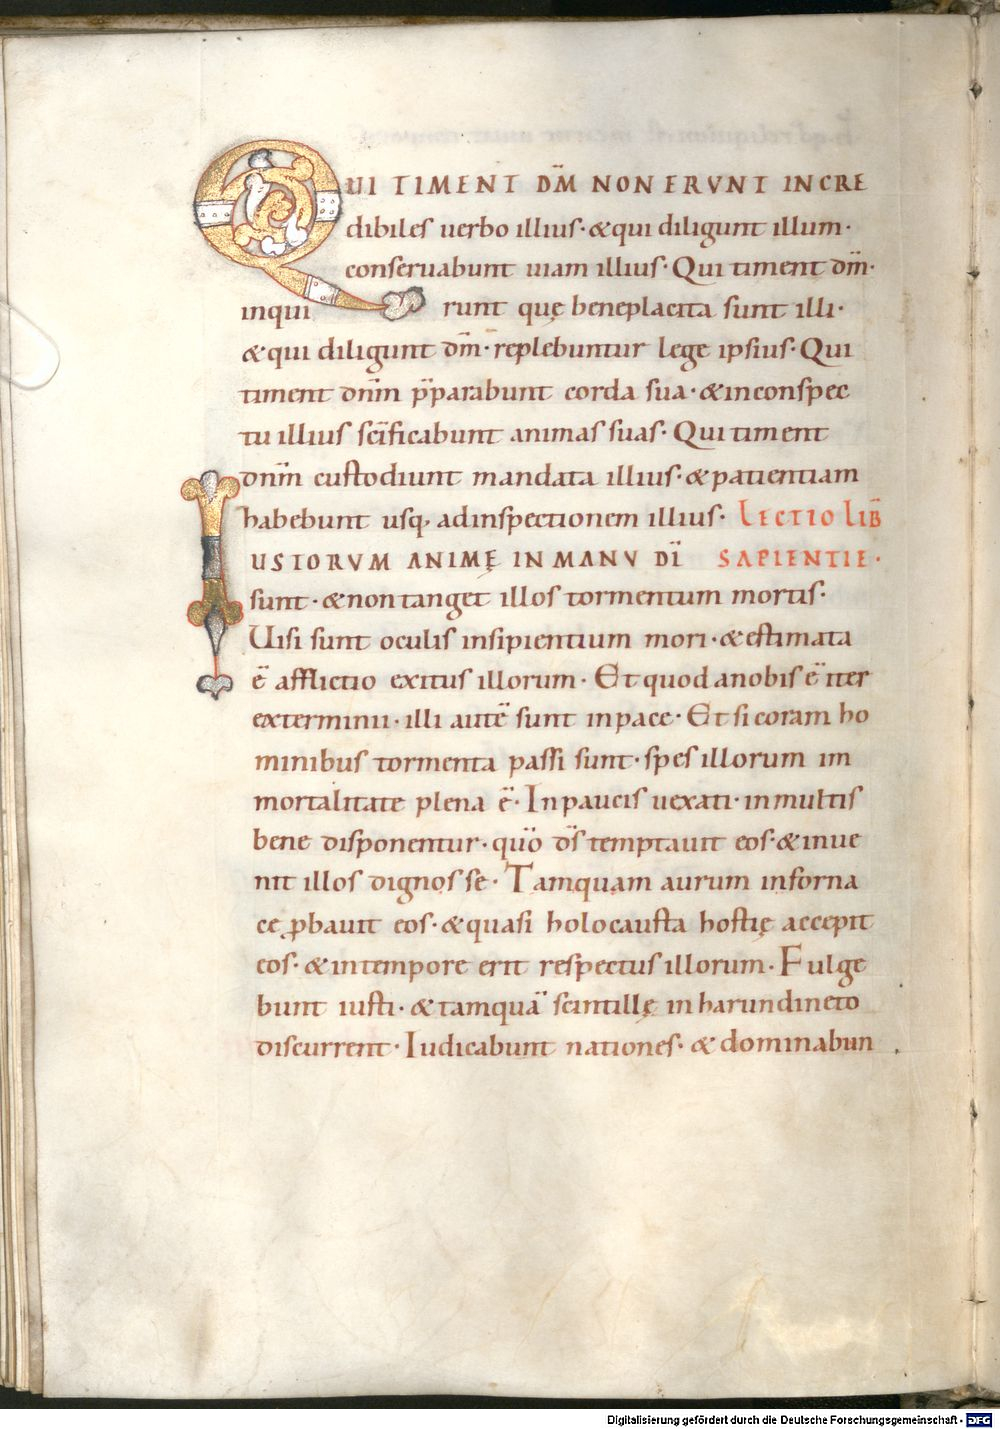 QUI TIMENT DM̅ NON ERVNT INCRE
dibiles uerbo illius· & qui diligunt illum·
conseruabunt uiam illius· Qui timent dm̅·
inqui runt quę beneplacita sunt illi·
& qui diligunt dm̅· replebuntur lege ipsius· Qui
timent dnm̅ p̅parabunt corda sua· & inconspec
tu illius sc̅ificabunt animas suas· Qui timent
dnm̅ custodiunt mandata illius· & patientiam
habebunt usq, adinspectionem illius· LECTIO LIB̅
IUSTORVM ANIMĘ IN MANV DI̅ SAPIENTIE·
sunt· & non tanget illos tormentum mortis·
Uisi sunt oculis insipientium mori· & estimata
e̅ afflictio exitus illorum· Et quod anobis e̅ iter
exterminii· illi aute̅ sunt inpace· Et si coram ho
minibus tormenta passi sunt· spes illorum im
mortalitate plena e̅· In paucis uexati· in multis
bene disponentur· quo̅ ds̅ temptauit eos· & inue
nit illos dignos se· Tamquam aurum inforna
ce ꝓbauit eos· & quasi holocausta hostię accepit
eos· & intempore erit respectus illorum· Fulge
bunt iusti· & tamqua̅ scintillę in harundineto
discurrent· Iudicabunt nationes· & dominabun
Digitalisierung gefördert durch die Deutsche Forschungsgemeinschaft - DFG